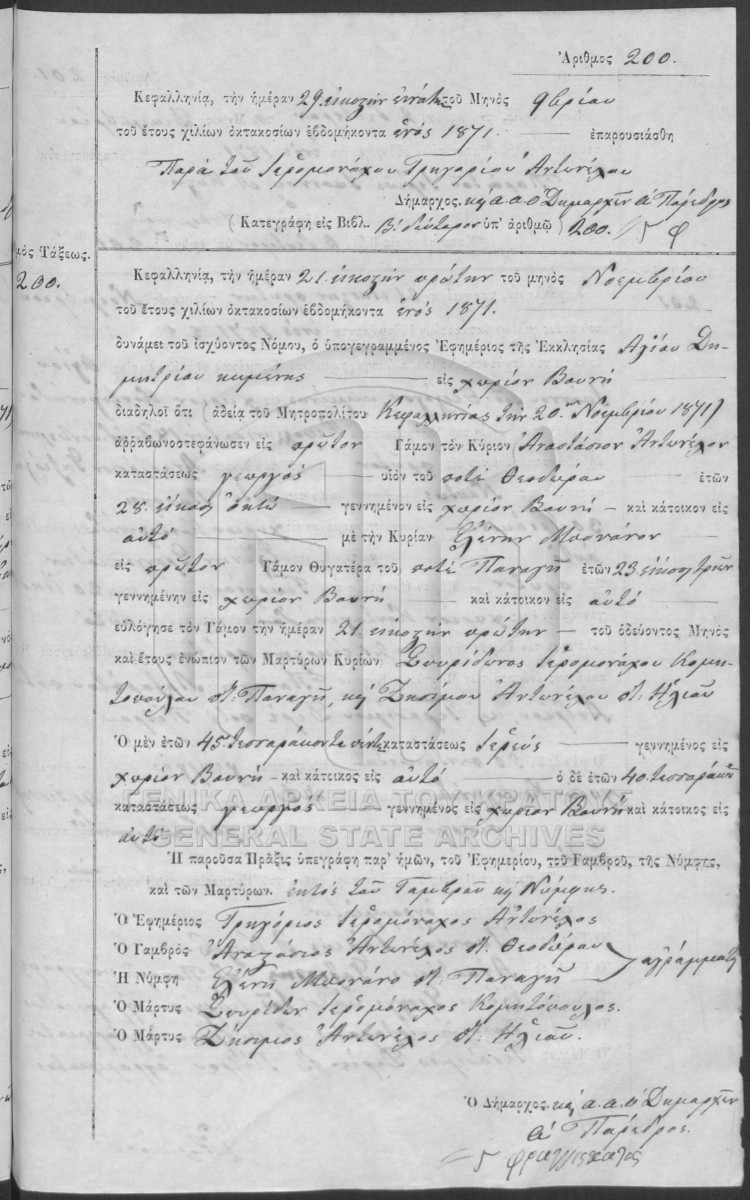 Ἀριθμος 200.
Κεφαλληνίᾳ, τὴν ἡμέραν 29 εἰκοστὴν ἐννάτην τοῦ Μηνὸς 9βρίου
τοῦ ἔτους χιλίων ὀκτακοσίων ἑβδομήκοντα ἑνός 1871. ἐπαρουσιάσθη
Παρὰ τοῦ Ἱερομονάχου Γρηγορίου Ἀντωνέλου
Δήμαρχος. κὴ α. α. ὁ Δημαρχ͞ων ἀ Πάρεδρος
( Κατεγράφη εἰς Βιβλ. Β: δεύτερον ὑπ' ἀριθμῷ ) 200.
μὸς Τάξεως.
200.
Κεφαλληνίᾳ, τὴν ἡμέραν 21 εἰκοστὴν πρώτην τοῦ μηνὸς Νοεμβρίου
τοῦ ἔτους χιλίων ὀκτακοσίων ἑβδομήκοντα ἑνός 1871.
δυνάμει τοῦ ἰσχύοντος Νόμου, ὁ ὑπογεγραμμένος Ἐφημέριος τῆς Ἐκκλησίας Ἁγίου Δη-
μητρίου κειμένης εἰς χωρίον Βουνή
διαδηλοῖ ὅτι ( ἀδείᾳ τοῦ Μητροπολίτου Κεφαλληνίας τὴν 20 Νοεμβρίου 1871)
ἀῤῥαβωνοστεφάνωσεν εἰς πρῶτον Γάμον τὸν Κύριον Ἀναστάσιον Ἀντωνέλον
καταστάσεως γεωργός υἱὸν τοῦ ποτέ Θεοδώρου ἐτῶν
28. εἴκοσι ὀκτώ γεννημένον εἰς χωρίον Βουνή καὶ κάτοικον εἰς
αὐτό μὲ τὴν Κυρίαν Ἑλένην Μπονάνον
εἰς πρῶτον Γάμον Θυγατέρα τοῦ ποτέ Παναγῆ ἐτῶν 23 εἰκοσιτριῶν
γεννημένην εἰς χωρίον Βουνή καὶ κάτοικον εἰς αὐτό
εὐλόγησε τὸν Γάμον τὴν ἡμέραν 21 εἰκοστὴν πρώτην τοῦ ὁδεύοντος Μηνὸς
καὶ ἔτους ἐνώπιον τῶν Μαρτύρων Κυρίων Σπυρίδωνος Ἱερομονάχου Κομη-
τοπούλου π. Παναγῆ, κὴ Ζησίμου Ἀντωνέλου π. Ἠλιοῦ
Ὁ μὲν ἐτῶν 45 τεσσαράκοντα πέντε καταστάσεως Ἱερεύς γεννημένος εἰς
χωρίον Βουνή καὶ κάτοικος εἰς αὐτό ὁ δὲ ἐτῶν 40 τεσσαράκον
καταστάσεως γεωργός γεννημένος εἰς χωρίον Βουνή καὶ κάτοικος εἰς
αὐτό
ΓΕΝΙΚΑ ΑΡΧΕΙΑ ΤΟΥ ΚΡΑΤΟΥΣ
GENERAL STATE ARCHIVES
Ἡ παροῦσα Πρᾶξις ὑπεγράφη παρ' ἡμῶν, τοῦ Ἐφημερίου, τοῦ Γαμβροῦ, τῆς Νύμφης,
καὶ τῶν Μαρτύρων. ἐκτὸς τοῦ Γαμβροῦ κὴ Νύμφης.
Ὁ Ἐφημέριος Γρηγόριος Ἱερομόναχος Ἀντωνέλος
Ὁ Γαμβρὸς Ἀναστάσιος Ἀντωνέλος π. Θεοδώρου
Ἡ Νύμφη Ἑλένη Μπονάνο π. Παναγῆ ἀγράμματοι
Ὁ Μάρτυς Σπυρίδων Ἱερομόναχος Κομητόπουλος.
Ὁ Μάρτυς Ζήσιμος Ἀντωνέλος π. Ἠλιοῦ.
Ὁ Δήμαρχος. κὴ α. α. ὁ Δημαρχ͞ων
ἀ Πάρεδρος.